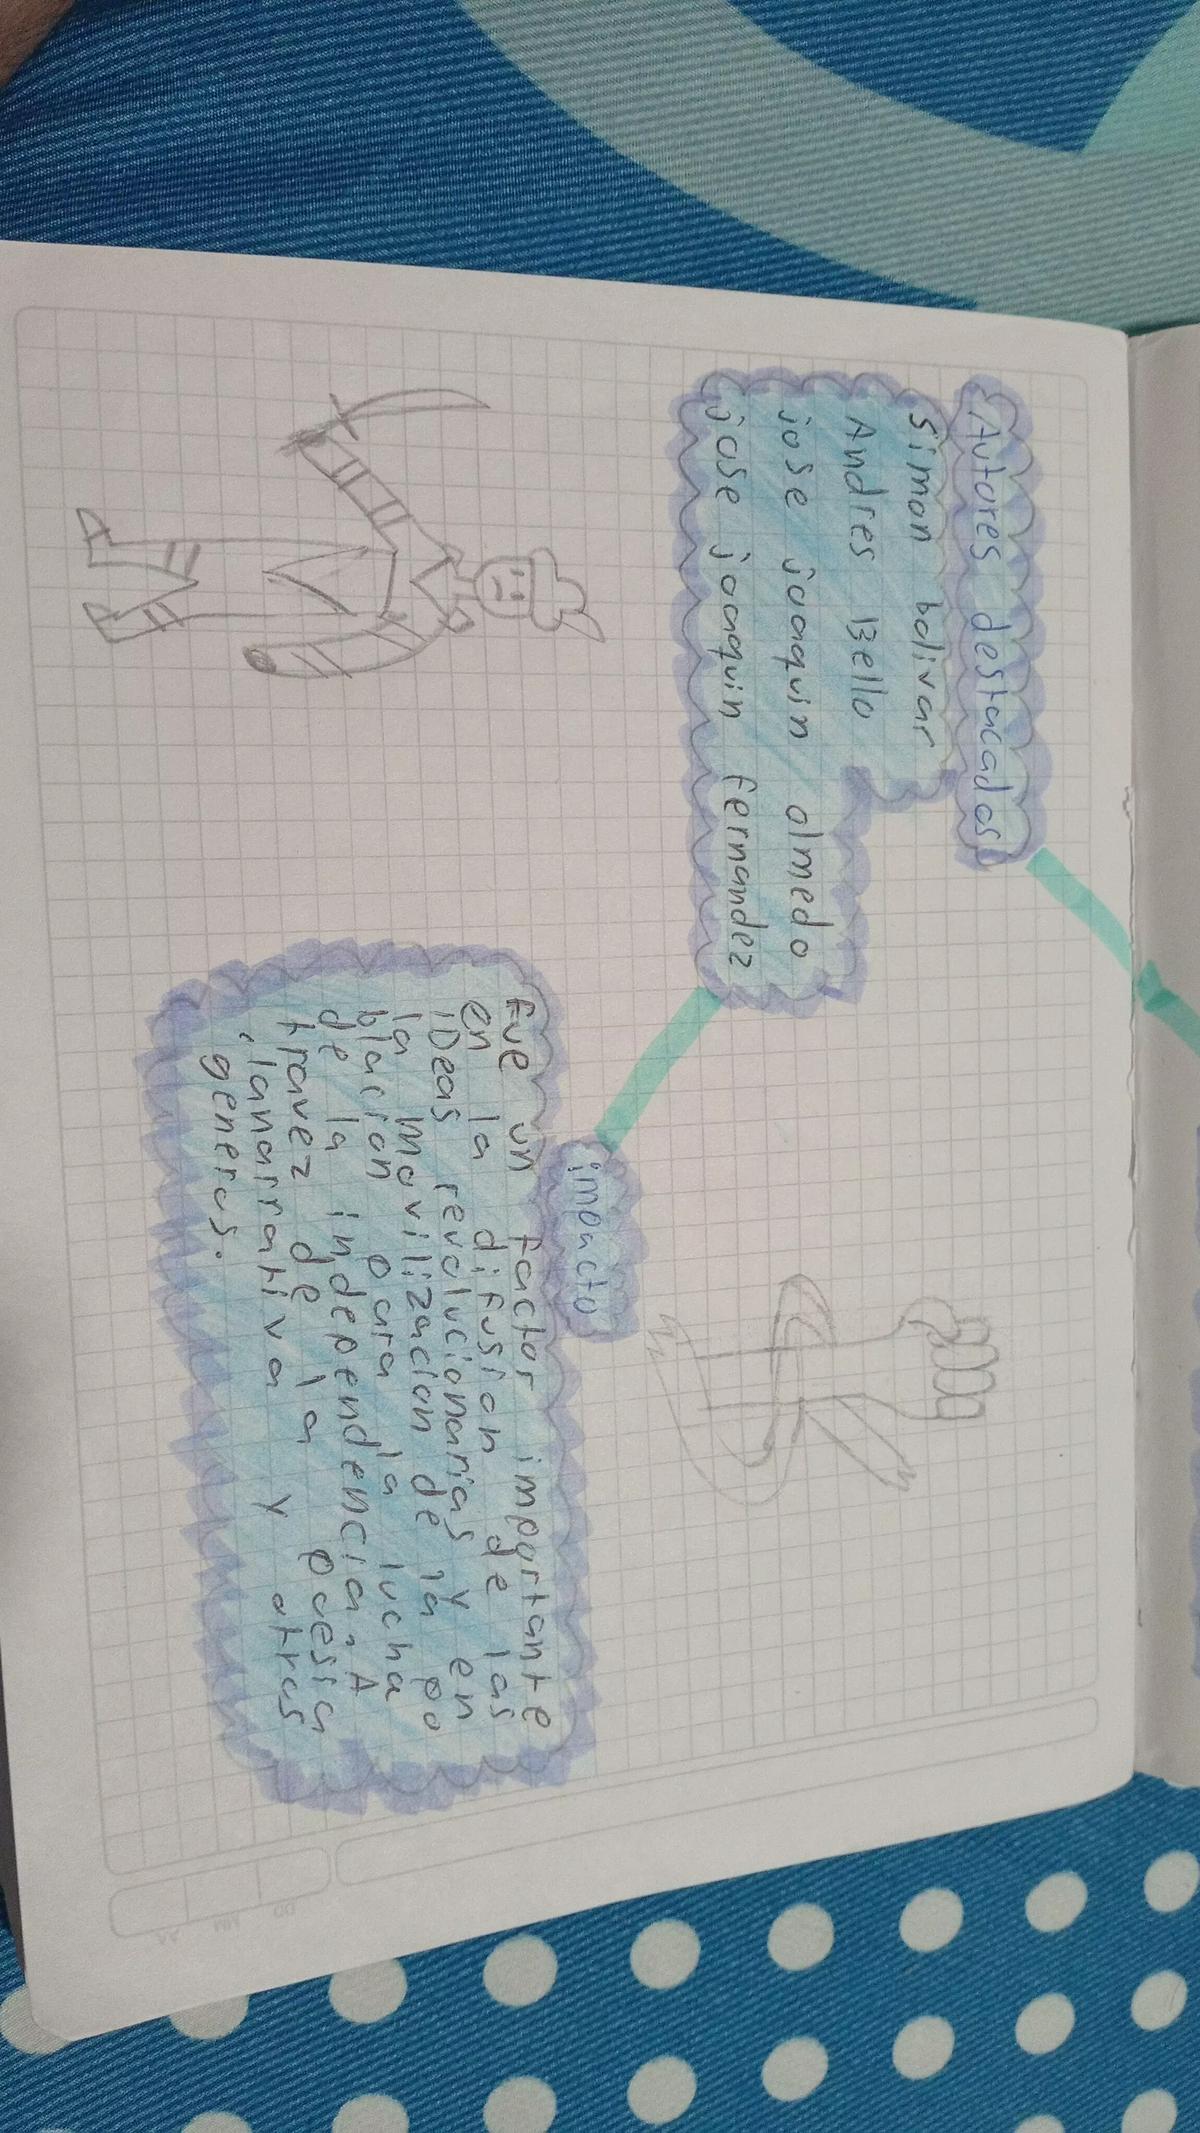 Autores destacados
Simon bolivar
Andres Bello
jose joaquin olmedo
jose joaquin fernandez
impacto
Fue un factor importante
en la difusion de las
iDeas revolucionarias y en
la movilizacion de la po
blacion para la lucha
de la independencia. A
travez de la poesia
, lanarrativa y otros
generos.
DD MM AA